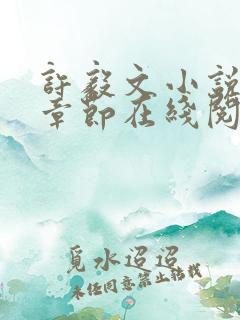 許毅文小說
章節在綫閱
覓水迢迢
未经同意禁止转载